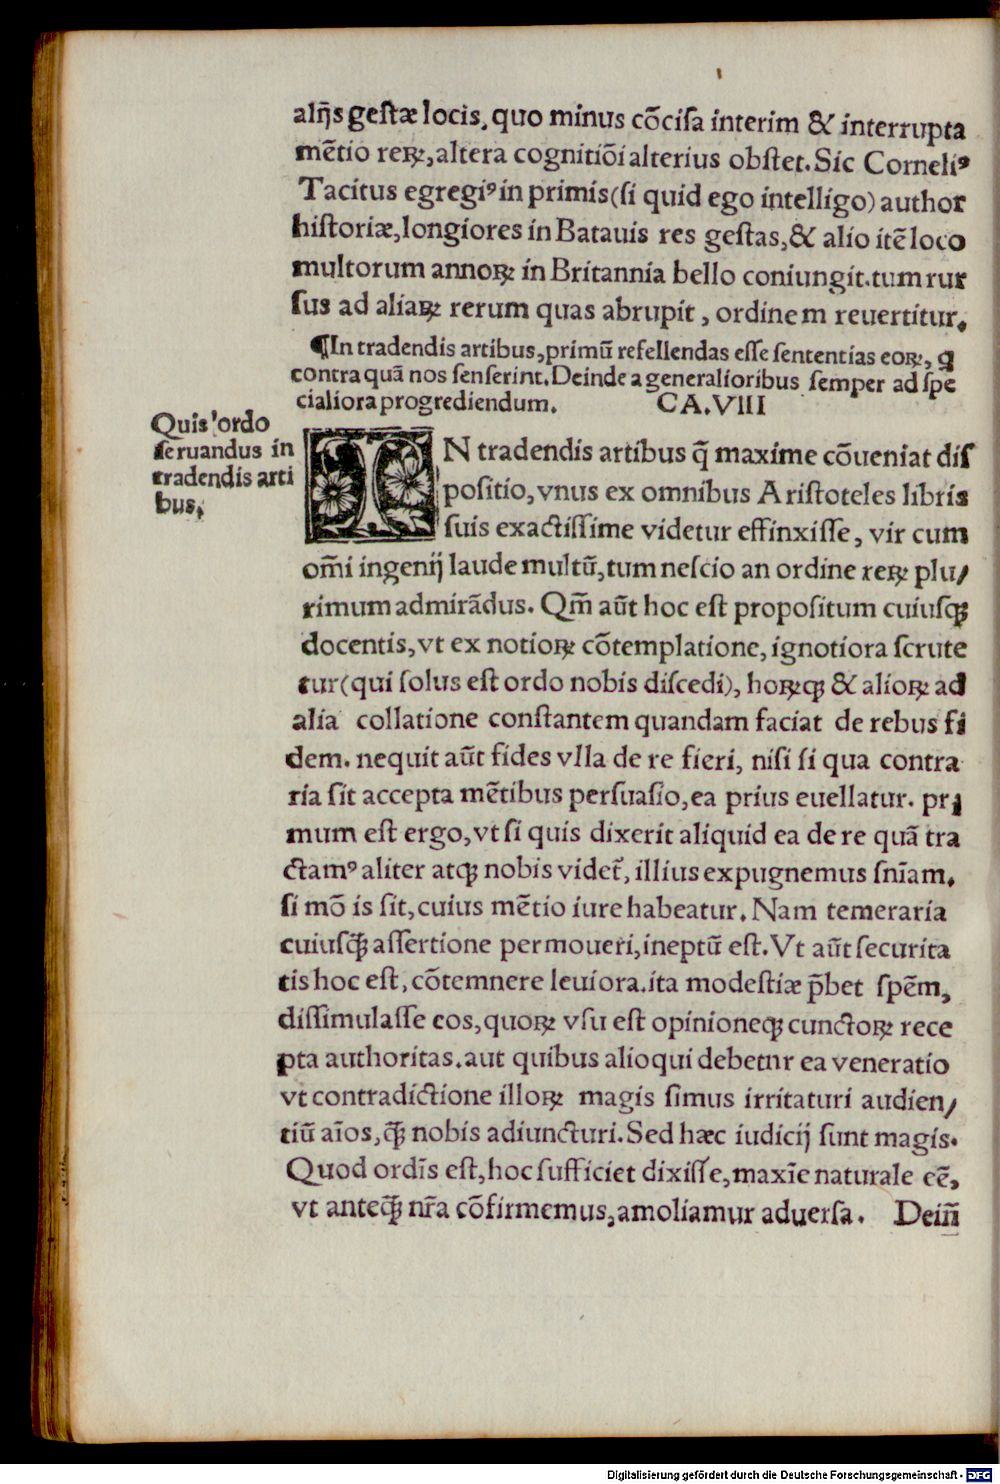 alijs gestæ locis, quo minus cōcisa interim & interrupta
mētio reꝝ, altera cognitiōi alterius obstet. Sic Corneliꝰ
Tacitus egregiꝰ in primis (si quid ego intelligo) author
historiæ, longiores in Batauis res gestas, & alio itē loco
multorum annoꝝ in Britannia bello coniungit. tum rur
sus ad aliaꝝ rerum quas abrupit, ordinem reuertitur.
¶In tradendis artibus, primū refellendas esse sententias eoꝝ, q
contra quā nos senserint. Deinde a generalioribus semper ad spe
cialiora progrediendum. CA. VIII
Quis ordo
seruandus in
tradendis arti
bus.
IN tradendis artibus q̄ maxime cōueniat dis
positio, vnus ex omnibus Aristoteles libris
suis exactissime videtur effinxisse, vir cum
om̄i ingenij laude multū, tum nescio an ordine reꝝ plu/
rimum admirādus. Qm̄ aūt hoc est propositum cuiusqꝫ
docentis, vt ex notioꝝ cōtemplatione, ignotiora scrute
tur (qui solus est ordo nobis discedi), hoꝝqꝫ & alioꝝ ad
alia collatione constantem quandam faciat de rebus fi
dem. nequit aūt fides vlla de re fieri, nisi si qua contra
ria sit accepta mētibus persuasio, ea prius euellatur. pri
mum est ergo, vt si quis dixerit aliquid ea de re quā tra
ctamꝰ aliter atqꝫ nobis videt̄, illius expugnemus sn̄iam.
si mō is sit, cuius mētio iure habeatur. Nam temeraria
cuiusqꝫ̄ assertione permoueri, ineptū est. Vt aūt securita
tis hoc est, cōtemnere leuiora. ita modestiæ p̄bet spēm,
dissimulasse eos, quoꝝ vsu est opinioneqꝫ cunctoꝝ rece
pta authoritas. aut quibus alioqui debetur ea veneratio
vt contradictione illoꝝ magis simus irritaturi audien/
tiū aīos, qꝫ̄ nobis adiuncturi. Sed hæc iudicij sunt magis.
Quod ordīs est, hoc sufficiet dixisse, maxīe naturale eē,
vt anteqꝫ̄ nr̄a cōfirmemus, amoliamur aduersa. Dein̄
Digitalisierung gefördert durch die Deutsche Forschungsgemeinschaft - DFG